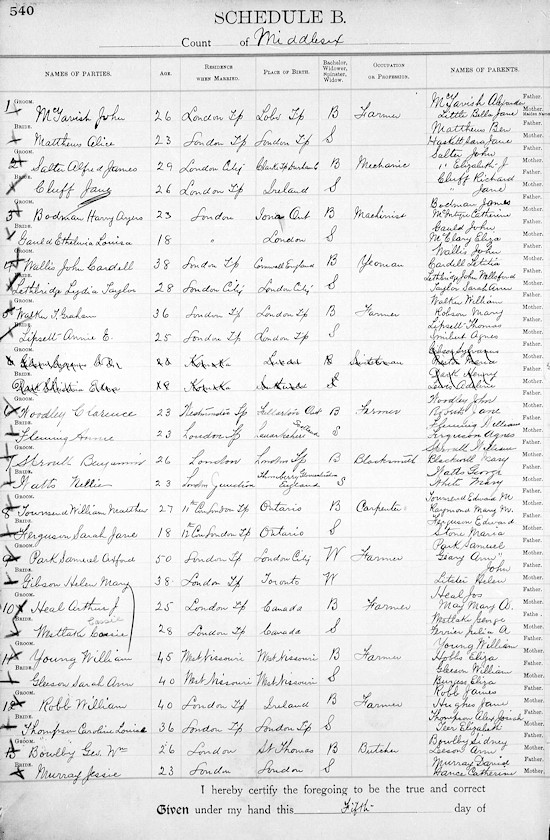 540
SCHEDULE B.
Count of Middlesex
NAMES OF PARTIES. AGE. RESIDENCE WHEN MARRIED. PLACE OF BIRTH. Bachelor, Widower, Spinster, Widow. OCCUPATION OR PROFESSION. NAMES OF PARENTS.
1 GROOM. McTavish John 26 London Tp Lobo Tp B Farmer McTavish Alexander Father.
Little Bella Jane Mother. Maiden Name
BRIDE. Matthews Alice 23 London Tp London Tp S Matthews Ben Father.
Haskett Sara Jane Mother.
2 GROOM. Salter Alfred James 29 London City B Mechanic Salter John Father.
" Elizabeth J Mother.
BRIDE. Cluff Jane 26 London Tp Ireland S Cluff Richard Father.
" Jane Mother.
3 GROOM. Bodman Harry Ayers 23 London Iona Ont B Machinist Bodman James Father.
McIntyre Catherine Mother.
BRIDE. Gauld Ethelvia Louisa 18 " London S Gauld John Father.
McClary Eliza Mother.
4 GROOM. Wallis John Cardell 38 London Tp Cornwall England B Yeoman Wallis John Father.
Cardell Letitia Mother.
BRIDE. Lethbridge Lydia Taylor 28 London City London City S Lethbridge John Father.
Taylor Sarah Ann Mother.
5 GROOM. Walker T. Graham 36 London Tp London Tp B Farmer Walker William Father.
Robson Mary Mother.
BRIDE. Lipsett Annie E. 25 London Tp London Tp S Lipsett Thomas Father.
Agnes Mother.
6 GROOM. B Father.
Mother.
BRIDE. Park S Park Henry Father.
Mother.
GROOM. Woodley Clarence 23 Ont B Farmer Woodley John Father.
Jane Mother.
BRIDE. Fleming Annie 23 London Tp Scotland S Fleming William Father.
Ferguson Agnes Mother.
7 GROOM. Benjamin 26 London London Tp B Blacksmith William Father.
Blackwell Mary Mother.
BRIDE. Watts Nellie 23 London Junction England S Watts George Father.
White Mary Mother.
8 GROOM. Townsend William Matthew 27 11th Con London Tp Ontario B Carpenter Townsend Edward M Father.
Raymond Mary M. Mother.
BRIDE. Ferguson Sarah Jane 18 12th Con London Tp Ontario S Ferguson Edward Father.
Stone Maria Mother.
9 GROOM. Park Samuel Axford 50 London Tp London City W Farmer Park Samuel Father.
Geary Ann Mother.
BRIDE. Gibson Helen Mary 38 London Tp Toronto W " John Father.
Helen Mother.
10 GROOM. Heal Arthur J 25 London Tp Canada B Farmer Heal Jos Father.
May Mary A. Mother.
BRIDE. Westlake Cassie Cassie 28 London Tp Canada S Westlake George Father.
Julia A Mother.
11 GROOM. Young William 45 West Nissouri West Nissouri B Farmer Young William Father.
Hobbs Eliza Mother.
BRIDE. Gleeson Sarah Ann 40 West Nissouri West Nissouri S Gleeson William Father.
Burgess Eliza Mother.
12 GROOM. Robb William 40 London Tp Ireland B Farmer Robb James Father.
Hughes Jane Mother.
BRIDE. Thompson Caroline Louisa 36 London Tp London Tp S Thompson Alex Josiah Father.
Teer Elizabeth Mother.
13 GROOM. Bowlby Geo. Wm 26 London St Thomas B Butcher Bowlby Sidney Father.
Ann Mother.
BRIDE. Murray Jessie 23 London London S Murray David Father.
Vance Catherine Mother.
I hereby certify the foregoing to be the true and correct
Given under my hand this Fifth day of